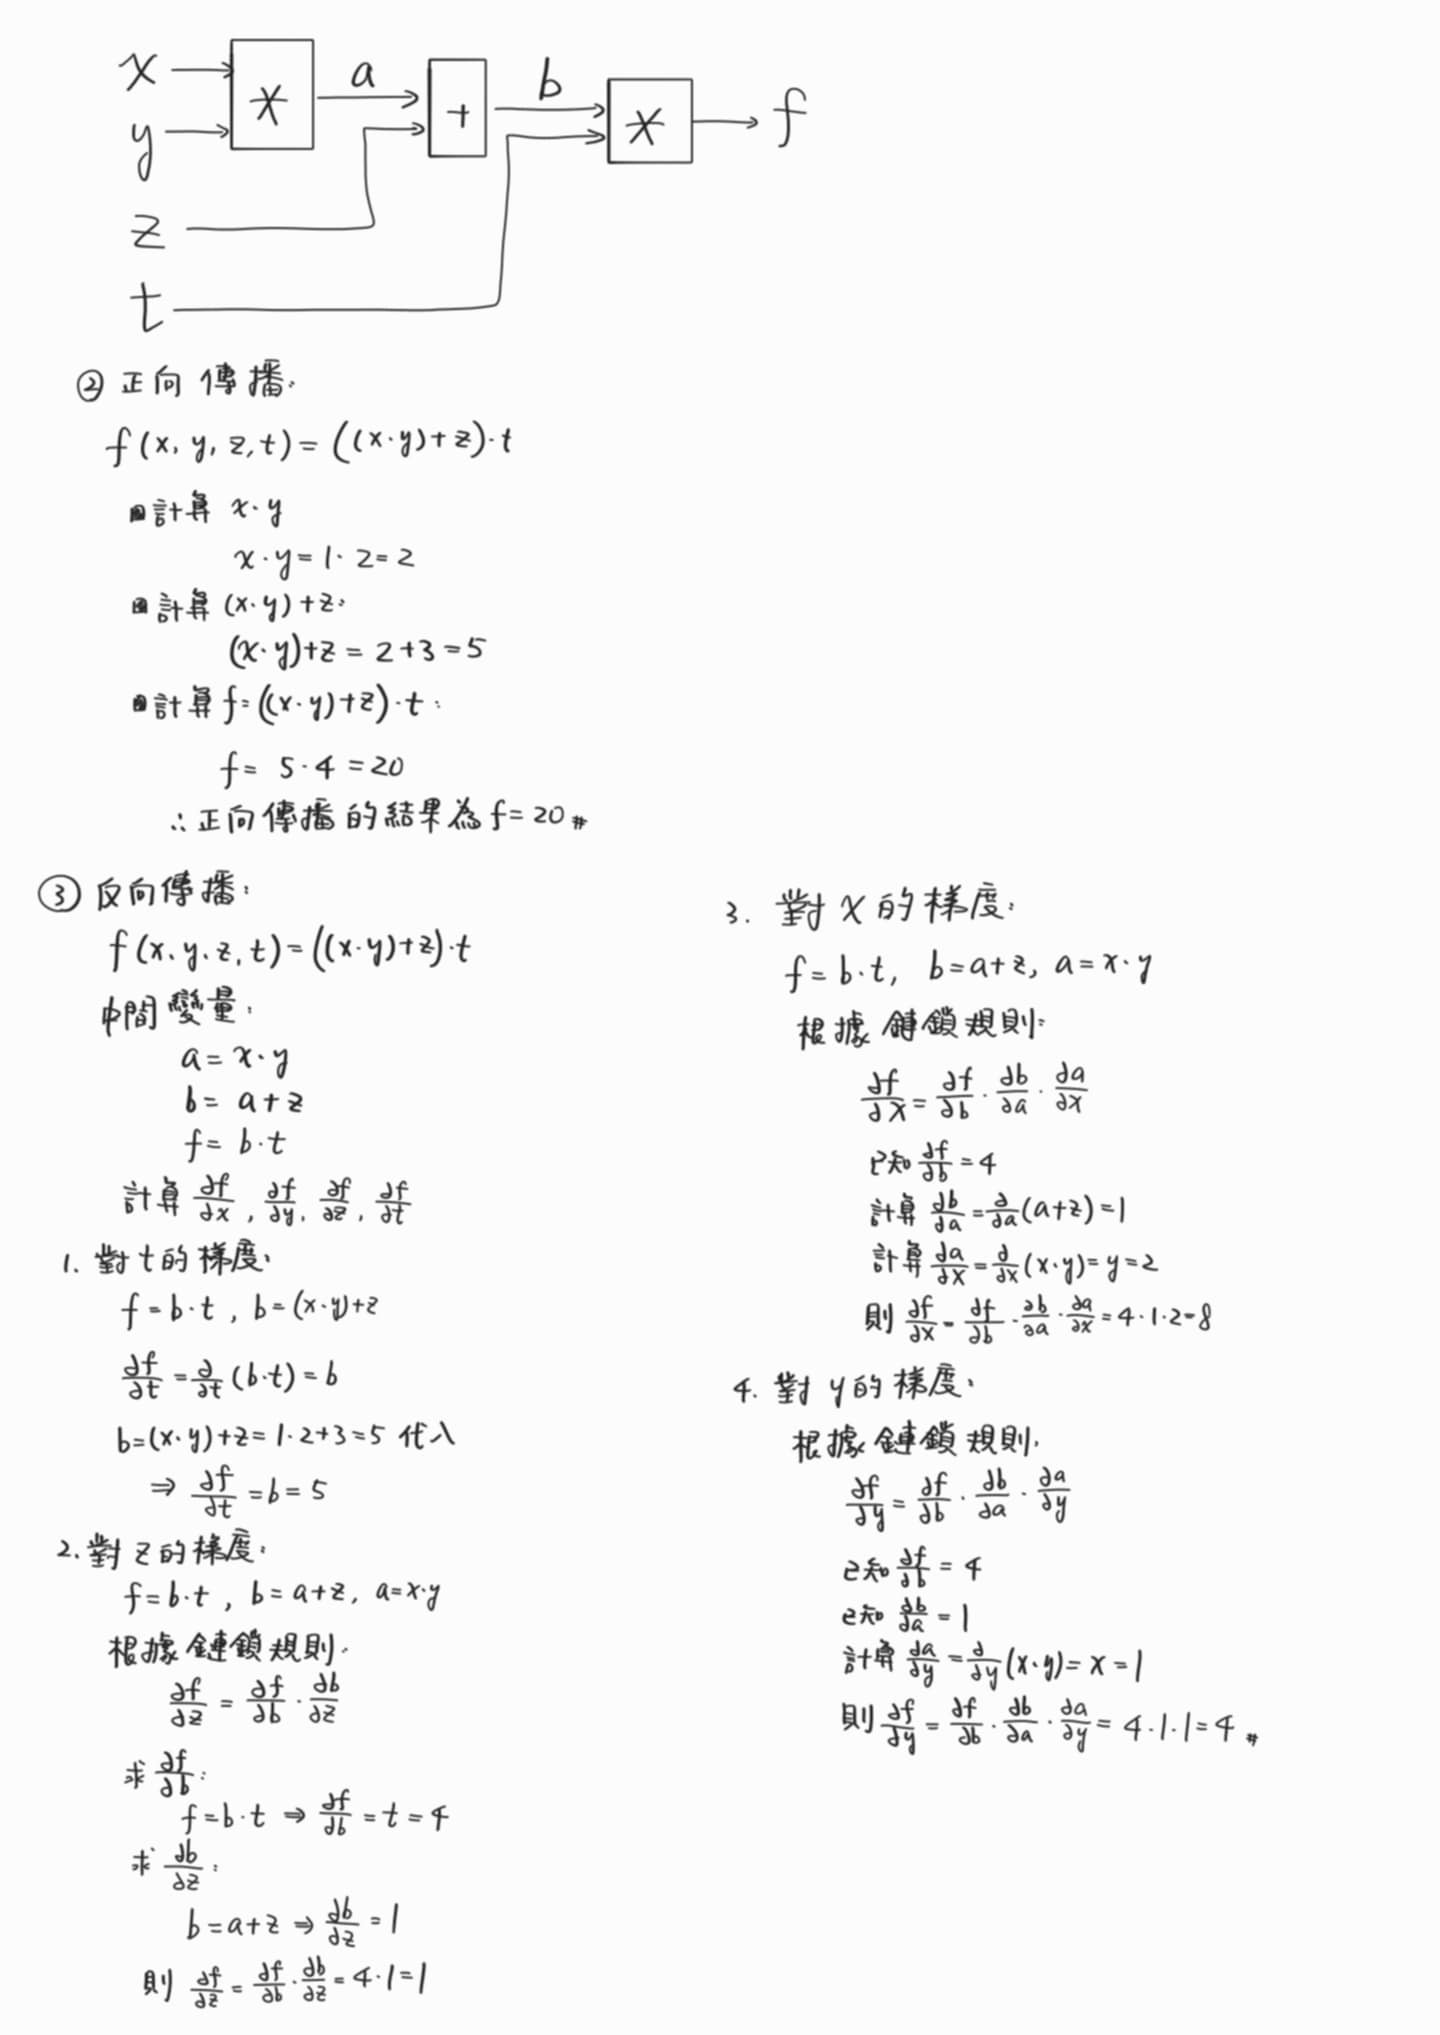 x
y
z
t
*
a
+
b
*
f
② 正向傳播:
f(x, y, z, t) = ((x·y)+z)·t
計算 x·y
x·y = 1·2 = 2
計算 (x·y)+z:
(x·y)+z = 2+3 = 5
計算 f=((x·y)+z)·t:
f = 5·4 = 20
∴正向傳播的結果為 f = 20 #
③ 反向傳播:
f(x, y, z, t) = ((x·y)+z)·t
中間變量:
a = x·y
b = a+z
f = b·t
計算 ∂f/∂x, ∂f/∂y, ∂f/∂z, ∂f/∂t
1. 對 t 的梯度:
f = b·t, b = (x·y)+z
∂f/∂t = ∂/∂t (b·t) = b
b=(x·y)+z = 1·2+3 = 5 代入
⇒ ∂f/∂t = b = 5
2. 對 z 的梯度:
f = b·t, b = a+z, a = x·y
根據鏈鎖規則:
∂f/∂z = ∂f/∂b · ∂b/∂z
求 ∂f/∂b:
f = b·t ⇒ ∂f/∂b = t = 4
求 ∂b/∂z:
b = a+z ⇒ ∂b/∂z = 1
則 ∂f/∂z = ∂f/∂b · ∂b/∂z = 4·1 = 1
3. 對 x 的梯度:
f = b·t, b = a+z, a = x·y
根據鏈鎖規則:
∂f/∂x = ∂f/∂b · ∂b/∂a · ∂a/∂x
已知 ∂f/∂b = 4
計算 ∂b/∂a = ∂/∂a (a+z) = 1
計算 ∂a/∂x = ∂/∂x (x·y) = y = 2
則 ∂f/∂x = ∂f/∂b · ∂b/∂a · ∂a/∂x = 4·1·2 = 8
4. 對 y 的梯度:
根據鏈鎖規則:
∂f/∂y = ∂f/∂b · ∂b/∂a · ∂a/∂y
已知 ∂f/∂b = 4
已知 ∂b/∂a = 1
計算 ∂a/∂y = ∂/∂y (x·y) = x = 1
則 ∂f/∂y = ∂f/∂b · ∂b/∂a · ∂a/∂y = 4·1·1 = 4 #